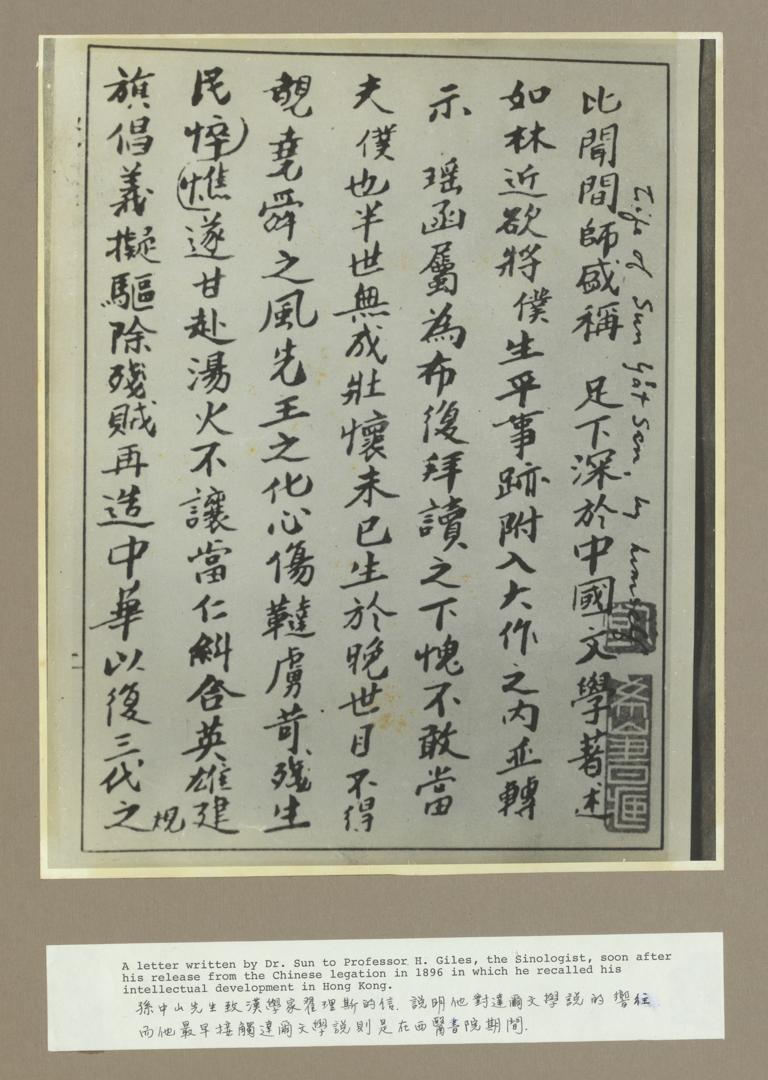 Life of Sun Yât Sen. by himself
比聞間師盛稱 足下深於中國文學著述
如林近欲將僕生平事跡附入大作之內並轉
示 瑶函屬為布復拜讀之下愧不敢當
夫僕也半世無成壯懷未已生於晚世目不得
覩堯舜之風先王之化心傷韃虜苛殘生
民悴憔遂甘赴湯火不讓當仁糾合英雄建
旗倡義擬驅除殘賊再造中華以復三代之規
A letter written by Dr. Sun to Professor H. Giles, the Sinologist, soon after
his release from the Chinese legation in 1896 in which he recalled his
intellectual development in Hong Kong.
孫中山先生致漢學家翟理斯的信. 說明他對達爾文學說的嚮往
而他最早接觸達爾文學說則是在西醫書院期間.